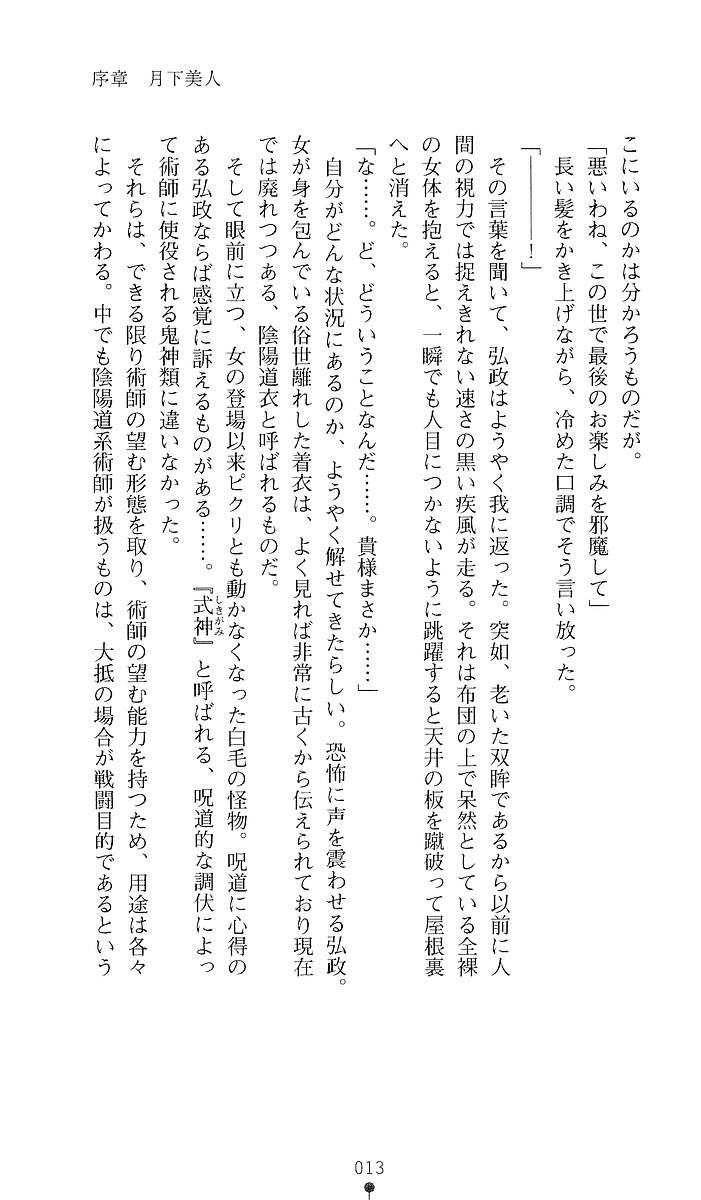 序章　月下美人
こにいるのかは分かろうものだが。
「悪いわね、この世で最後のお楽しみを邪魔して」
　長い髪をかき上げながら、冷めた口調でそう言い放った。
「―――！」
　その言葉を聞いて、弘政はようやく我に返った。突如、老いた双眸であるから以前に人
間の視力では捉えきれない速さの黒い疾風が走る。それは布団の上で呆然としている全裸
の女体を抱えると、一瞬でも人目につかないように跳躍すると天井の板を蹴破って屋根裏
へと消えた。
「な……。ど、どういうことなんだ……。貴様まさか……」
　自分がどんな状況にあるのか、ようやく解せてきたらしい。恐怖に声を震わせる弘政。
女が身を包んでいる俗世離れした着衣は、よく見れば非常に古くから伝えられており現在
では廃れつつある、陰陽道衣と呼ばれるものだ。
　そして眼前に立つ、女の登場以来ピクリとも動かなくなった白毛の怪物。呪道に心得の
ある弘政ならば感覚に訴えるものがある……。『式神』と呼ばれる、呪道的な調伏によっ
しきがみ
て術師に使役される鬼神類に違いなかった。
　それらは、できる限り術師の望む形態を取り、術師の望む能力を持つため、用途は各々
によってかわる。中でも陰陽道系術師が扱うものは、大抵の場合が戦闘目的であるという
013